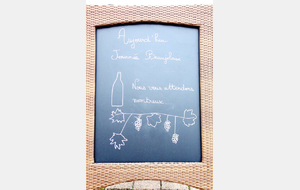 Aujourd'hui
Journée Beaujolais
Nous vous attendons
nombreux